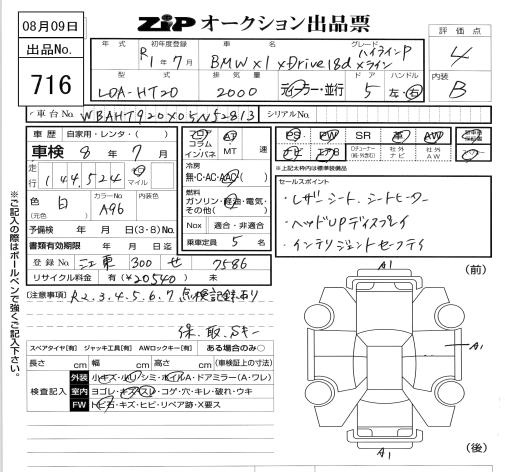 08月09日
ZIP オークション出品票
出品No.
716
評価点
4
内装
B
年式 初年度登録 車名 グレード
R1年7月 BMW X1 xDrive18d ハイラインP xライン
型式 排気量 ドア ハンドル
LDA-HT20 2000 ディーラー・並行 5 左・右
車台No. WBAHT920X05N52813 シリアルNo.
車歴 自家用・レンタ・( )
車検 8年7月
走行 144,524 km マイル
色 白 (元色) カラーNo. A96
予備検 年 月 日(3・8)
書類有効期限 年 月 日迄
登録No. 江東 300 せ 7586
リサイクル料金 有(¥20540) 未
フロア コラム インパネ AT MT 速
冷房
無・C・AC・AAC( )
燃料
ガソリン・軽油・電気・その他( )
Nox 適合・非適合
乗車定員 5 名
PS PW SR 革 AW
ナビ エアB
社外ナビ 社外AW
※上記太枠内は標準装備品
セールスポイント
・レザーシート、シートヒーター
・ヘッドUPディスプレイ
・インテリジェントセーフティ
[注意事項] R2.3.4.5.6.7点検記録有り
保、取、Sキー
スペアタイヤ[有] ジャッキ工具[有] AWロックキー[有] ある場合のみ○
長さ cm 幅 cm 高さ cm (車検証上の寸法)
検査記入
外装 小キズ・小リ/シミ・ホイルA・ドアミラー(A・ワレ)
室内 ヨゴレ・キズ・スレ・コゲ・穴・キレ・破れ・ウキ
FW トビ石・キズ・ヒビ・リペア跡・X要ス
※ご記入の際はボールペンで強くご記入下さい。
A1
(前)
A1
A1
(後)